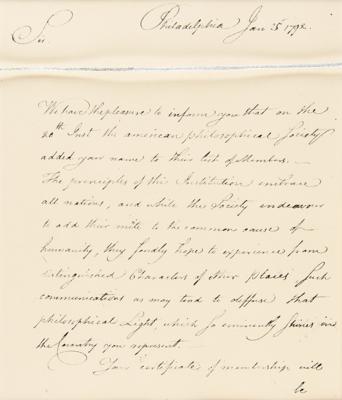 Philadelphia Jan 25th 1792
Sir.
We have the pleasure to inform you that on the
20th Inst the american philosophical Society
added your name to their list of Members. —
The principles of this Institution embrace
all nations, and while the Society endeavour
to add their mite to the common cause of
humanity, they fondly hope to experience from
distinguished Characters of other places such
communications as may tend to diffuse that
philosophical Light, which so eminently shines in
the Country you represent. —
Your certificate of membership will
be